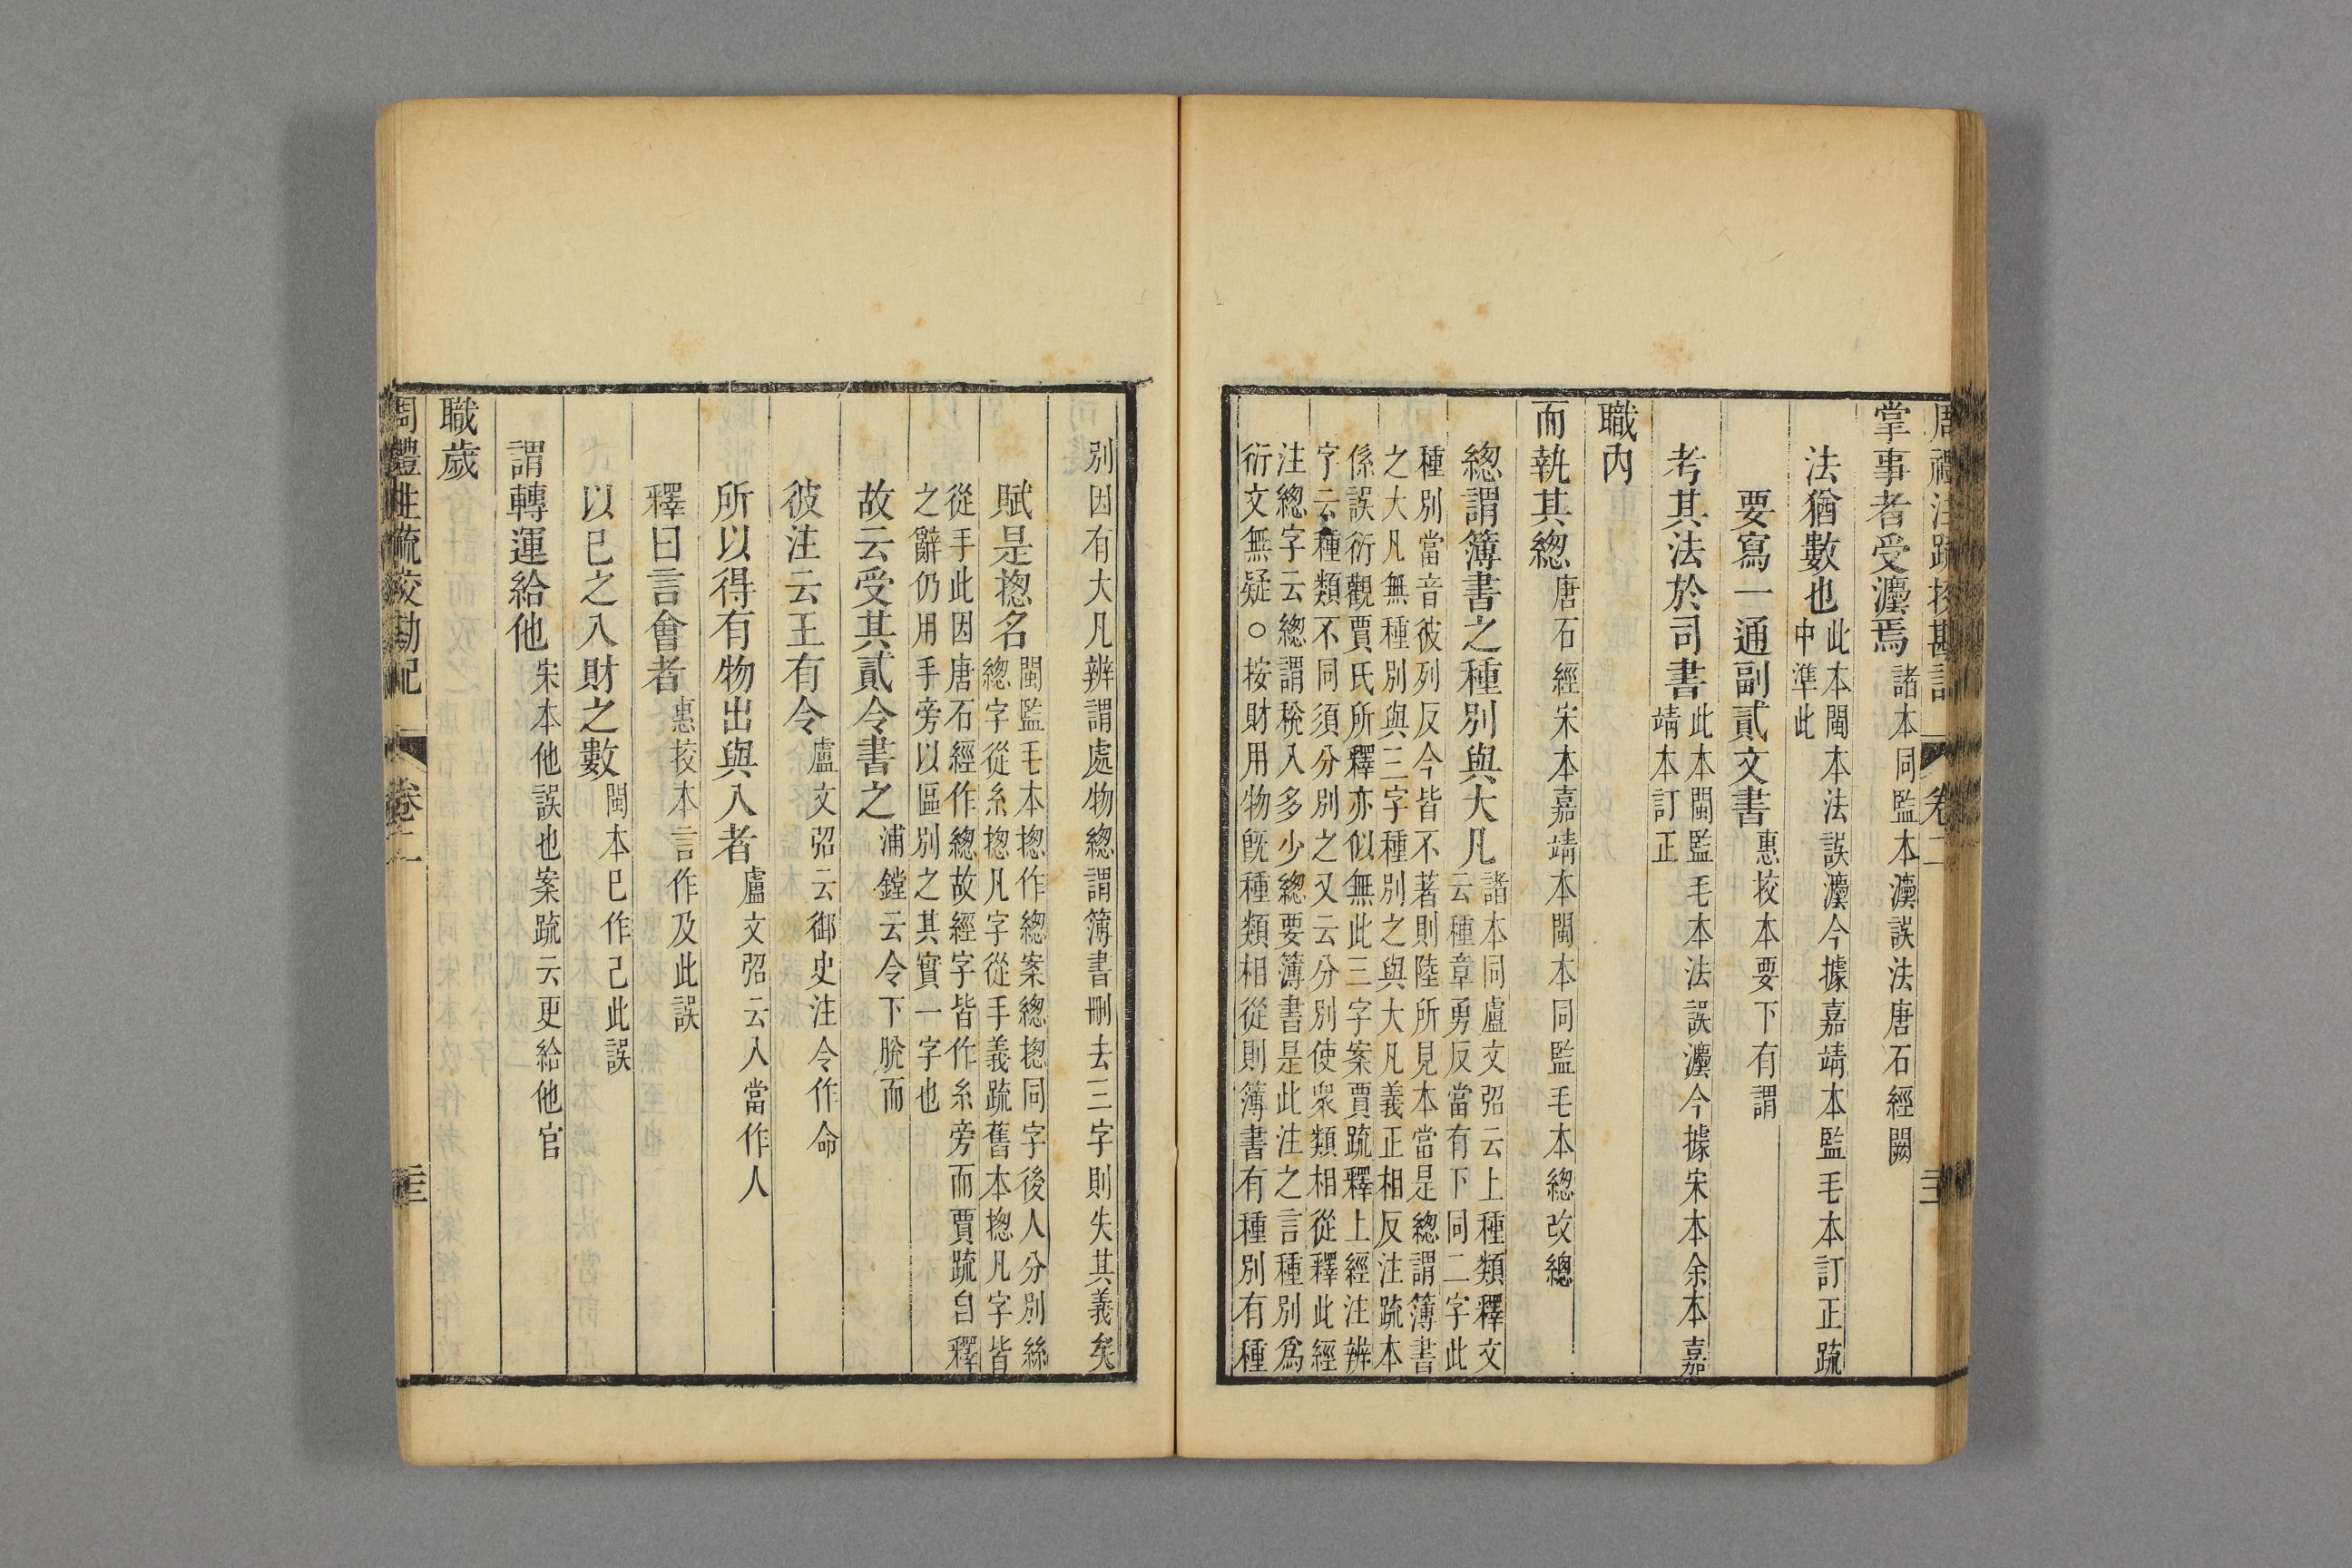 周禮注疏挍勘記 卷二 三
掌事者受灋焉諸本同監本灋誤法唐石經闕
法猶數也此本閩本法誤灋今據嘉靖本監毛本訂正疏
中準此
要寫一通副貳文書惠挍本要下有謂
考其法於司書此本閩監毛本法誤灋今據宋本余本嘉
靖本訂正
職內
而執其總唐石經宋本嘉靖本閩本同監毛本總改總
總謂簿書之種別與大凡諸本同盧文弨云上種類釋文
云種章勇反當有下同二字此
種別當音彼列反今皆不著則陸所見本當是總謂簿書
之大凡無種別與三字種別之與大凡義正相反注疏本
係誤衍觀賈氏所釋亦似無此三字案賈疏釋上經注辨
字云種類不同須分別之又云分別使眾類相從釋此經
注總字云總謂稅入多少總要簿書是此注之言種別為
衍文無疑○按財用物旣種類相從則簿書有種別有種
別因有大凡辨謂處物總謂簿書刪去三字則失其義矣
賦是揔名閩監毛本揔作總案總揔同字後人分別絲
總字從糸揔凡字從手義疏舊本揔凡字皆
從手此因唐石經作總故經字皆作糸旁而賈疏自釋
之辭仍用手旁以區別之其實一字也
故云受其貳令書之浦鏜云令下脫而
彼注云王有令盧文弨云御史注令作命
所以得有物出與入者盧文弨云入當作人
釋曰言會者惠挍本言作及此誤
以已之入財之數閩本已作己此誤
謂轉運給他宋本他誤也案疏云更給他官
職歲
周禮注疏挍勘記 卷二